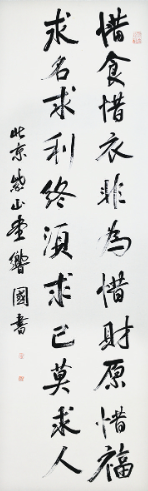 惜食惜衣非為惜財原惜福
求名求利終須求己莫求人
北京嵗山堂鑾國書